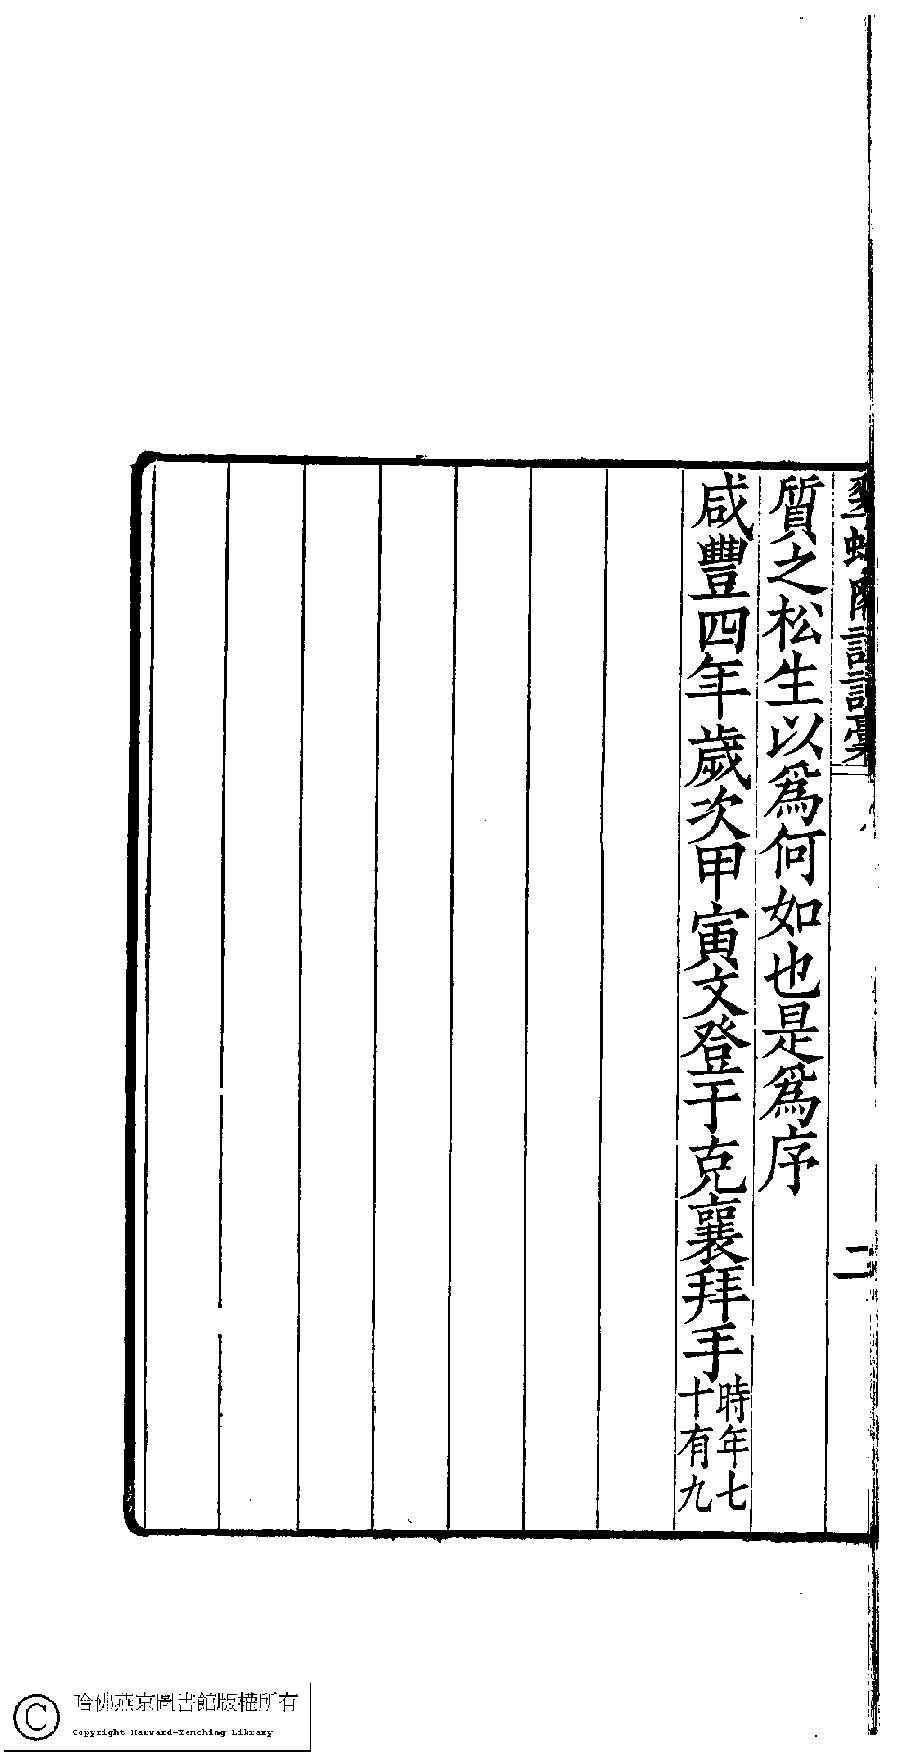 詩彙
二
質之松生以爲何如也是爲序
咸豐四年歲次甲寅文登于克襄拜手
時年七
十有九
哈佛燕京圖書館版權所有
Copyright Harvard-Yenching Library